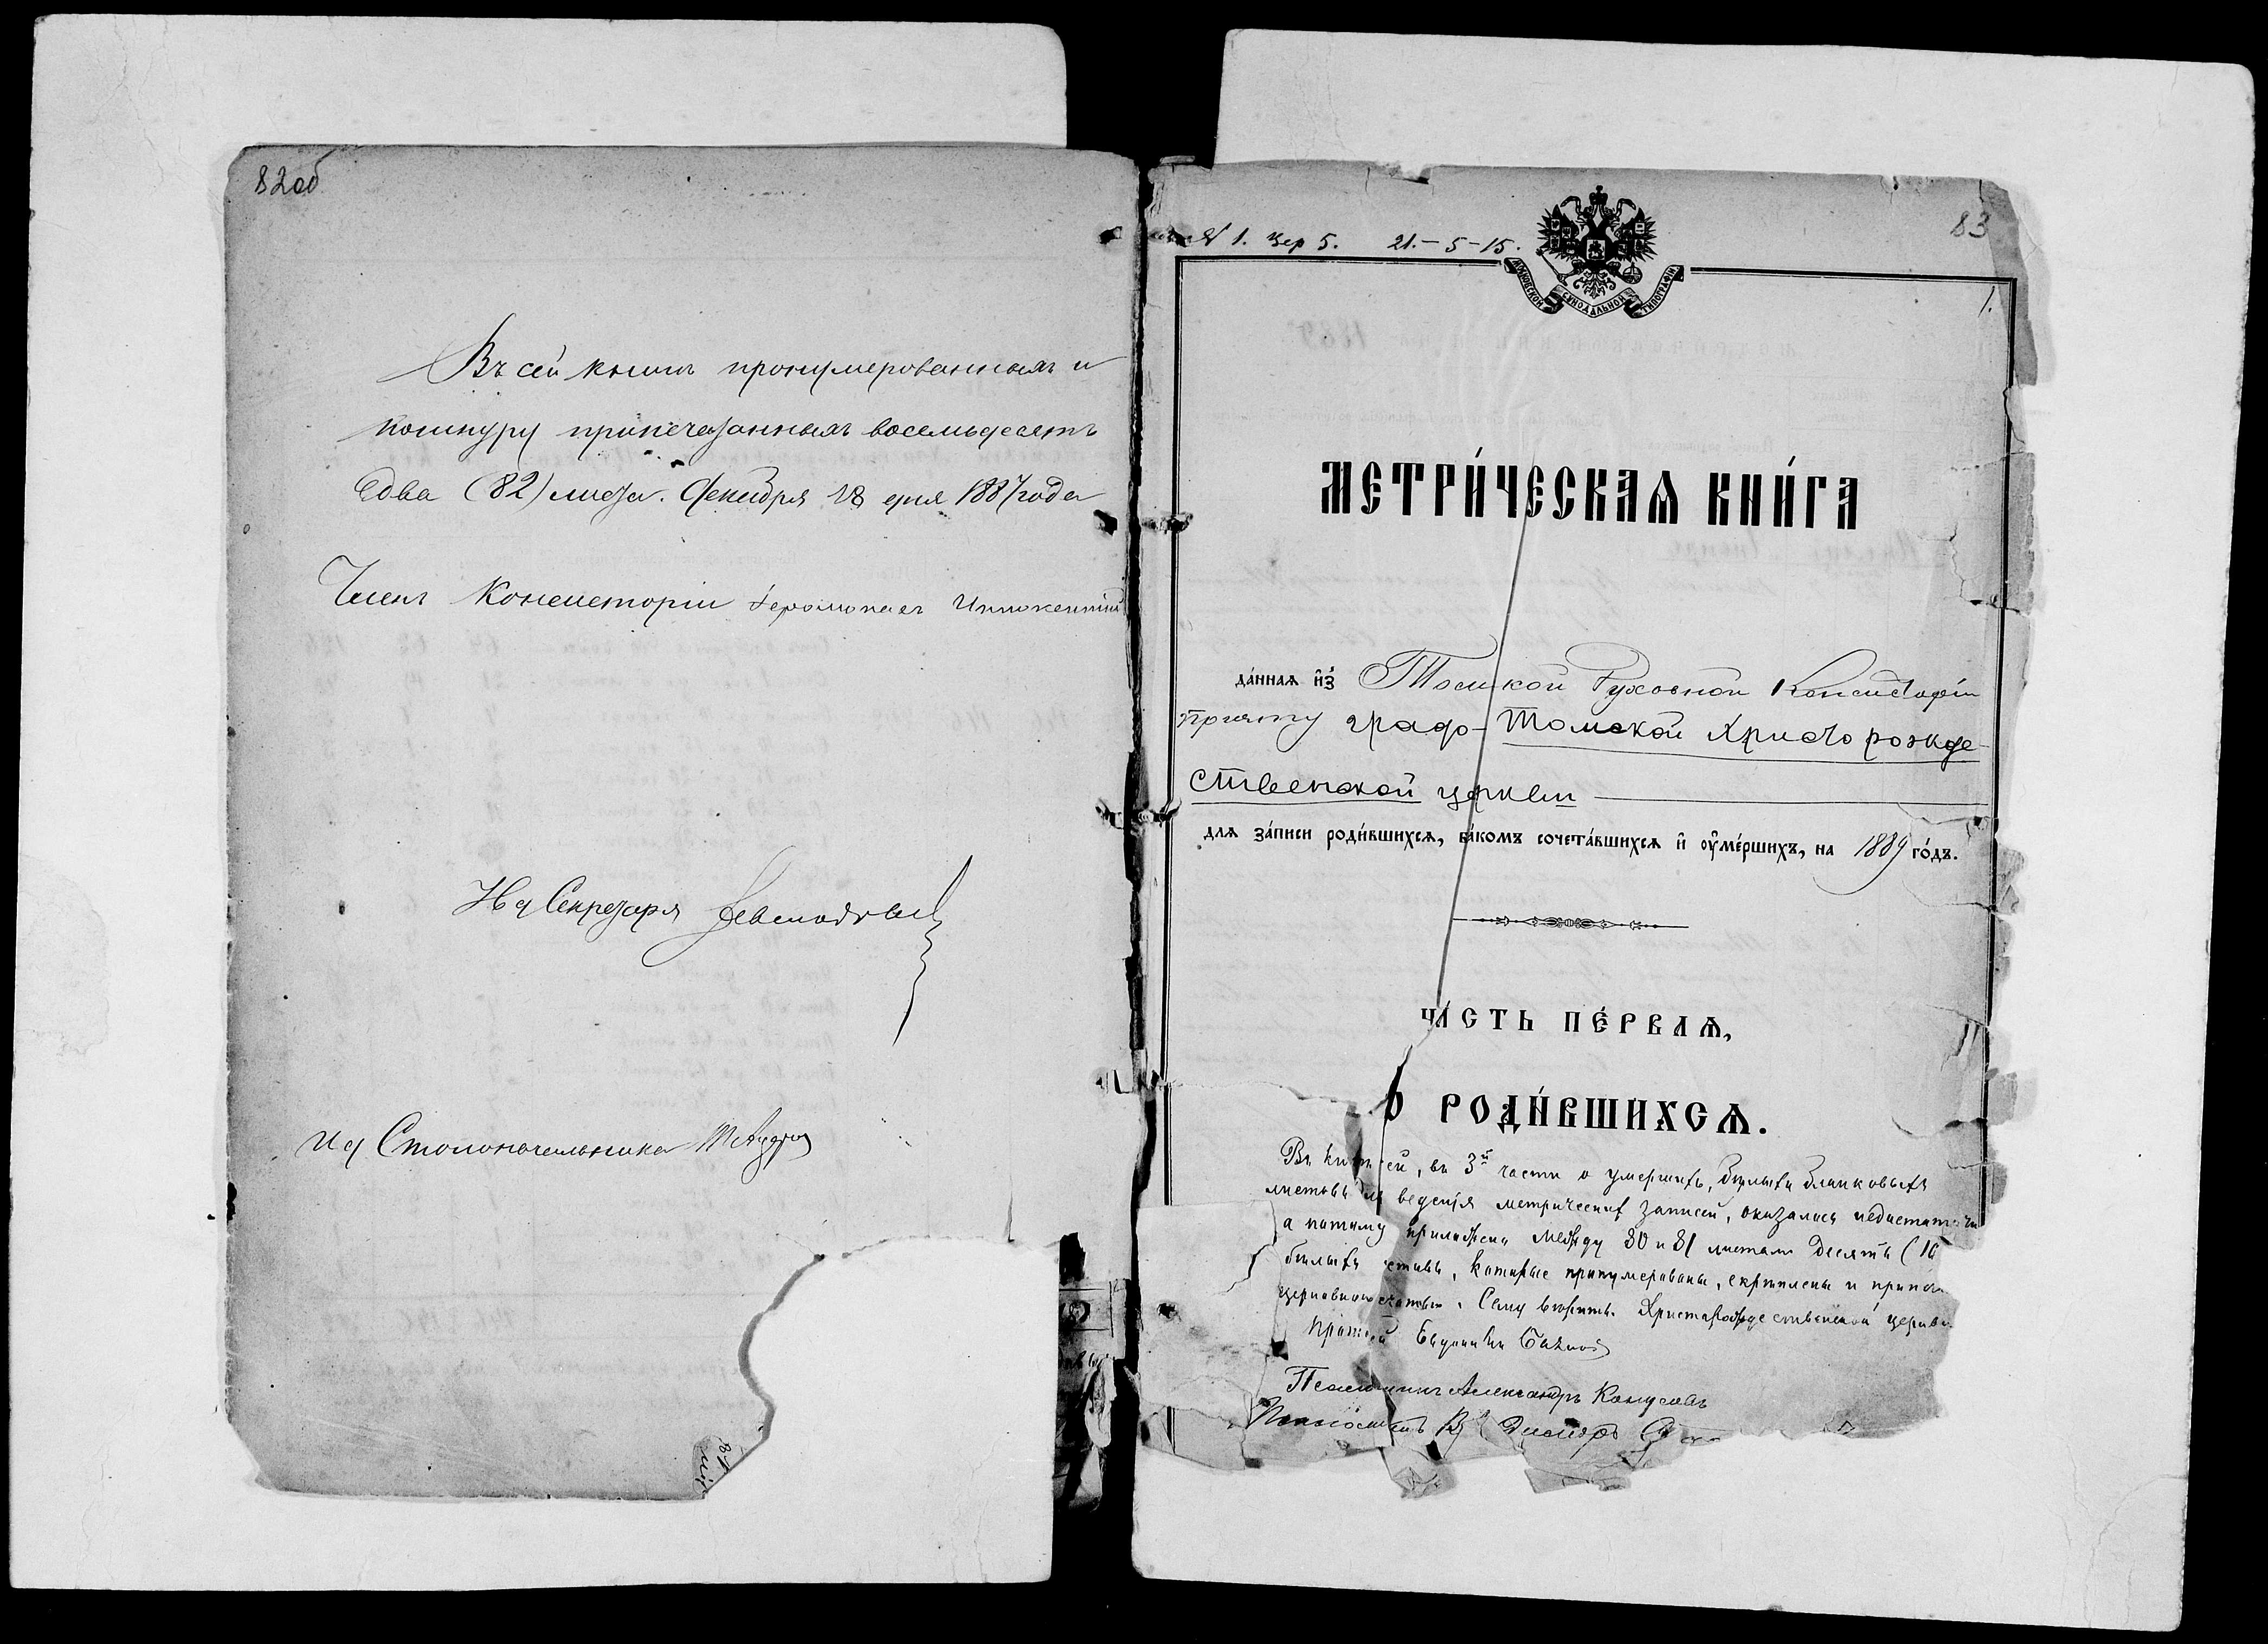 82об
Въ сей книгѣ пронумерованныхъ и
пошнуру припечатанныхъ восемьдесятъ
два (82) листа. Декабря 18 дня 1887 года
Членъ Консисторіи Іеромонахъ Иннокентій
И д Секретаря
И д Столоначальника
№ 1. чер 5. 21.-5-15.
83
МОСКОВСКОЙ СѴНОДАЛЬНОЙ ТИПОГРАФІИ
1.
МЕТРИ́ЧЕСКАѦ КНИ́ГА
да́ннаѧ и҆з̾ Томской Духовной Консисторіи
причту градо-Томской Христорожде-
ственской церкви
длѧ за́писи роди́вшихсѧ, бра́комъ сочета́вшихсѧ и҆ ᲂу҆ме́ршихъ, на 1889 го́дъ.
ЧА́СТЬ ПЕ́РВАѦ,
Ѡ҆ РОДИ́ВШИХСѦ.
Въ книгѣ сей, въ 3й части о умершихъ, бѣлыхъ бланковыхъ
листовъ для веденія метрическихъ записей, оказалось недостаточно
а потому приложены между 80 и 81 листами десять (10
бѣлыхъ листовъ, которые пронумерованы, скрѣплены и припеч
церковною печатью. Семъ вѣрить. Христорождественской церкви
Протоіерей
Псаломщикъ Александръ